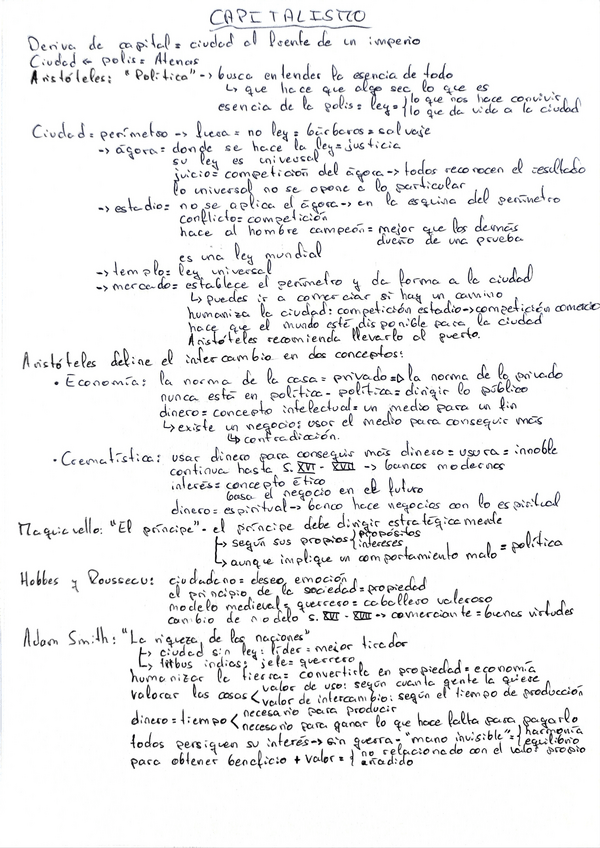 CAPITALISMO
Deriva de capital = ciudad al frente de un imperio
Ciudad ← polis = Atenas
Aristóteles: "Política" -> busca entender la esencia de todo
↳ que hace que algo sea lo que es
esencia de la polis = ley = { lo que nos hace convivir
lo que da vida a la ciudad
Ciudad = perímetro -> fuera = no ley = bárbaros = salvaje
-> ágora = donde se hace la ley = justicia
su ley es universal
juicio = competición del ágora -> todos reconocen el resultado
lo universal no se opone a lo particular
-> estadio = no se aplica el ágora -> en la esquina del perímetro
conflicto = competición
hace al hombre campeón = mejor que los demás
dueño de una prueba
es una ley mundial
-> templo = ley universal
-> mercado = establece el perímetro y da forma a la ciudad
↳ puedes ir a comerciar si hay un camino
humaniza la ciudad: competición estadio -> competición comercio
hace que el mundo esté disponible para la ciudad
Aristóteles recomienda llevarlo al puerto.
Aristóteles define el intercambio en dos conceptos:
• Economía: la norma de la casa = privado => la norma de lo privado
nunca está en política - política = dirigir lo público
dinero = concepto intelectual = un medio para un fin
↳ existe un negocio: usar el medio para conseguir más
↳ contradicción.
• Crematística: usar dinero para conseguir más dinero = usura = innoble
continua hasta s. XVI - XVII -> bancos modernos
interés = concepto ético
basa el negocio en el futuro
dinero = espiritual -> banco hace negocios con lo espiritual
Maquiavello: "El príncipe" - el príncipe debe dirigir estratégicamente
↳ según sus propios { propósitos
intereses
↳ aunque implique un comportamiento malo = política
Hobbes y Rousseau: ciudadano = deseo, emoción
el principio de la sociedad = propiedad
modelo medieval = guerrero = caballero valeroso
cambio de modelo s. XVI - XVII -> comerciante = buenas virtudes
Adam Smith: "La riqueza de las naciones"
↳ ciudad sin ley: líder = mejor tirador
↳ tribus indias: jefe = guerrero
humanizar la tierra = convertirla en propiedad = economía
valorar las cosas < valor de uso: según cuanta gente la quiere
valor de intercambio: según el tiempo de producción
dinero = tiempo < necesario para producir
necesario para ganar lo que hace falta para pagarlo
todos persiguen su interés -> sin guerra - "mano invisible" = { harmonía
equilibrio
para obtener beneficio + valor = { no relacionado con el valor propio
añadido